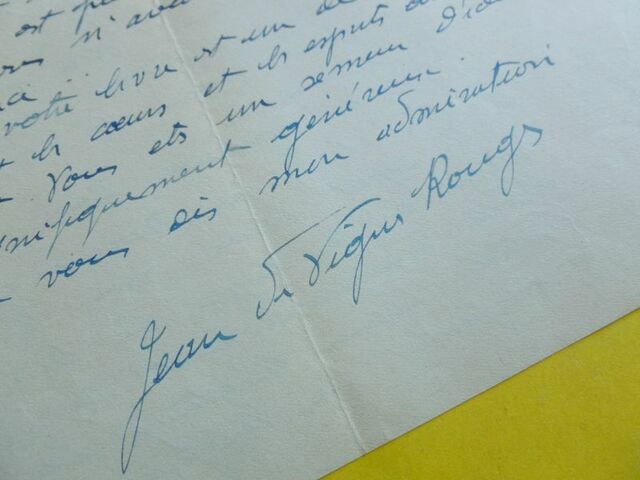 est
n'avai
votre livre est un de
les cœurs et les esprits
Vous êts un semeur d'idé
magnifiquement généreux.
vous dis mon admiration
Jean des Vignes Rouges